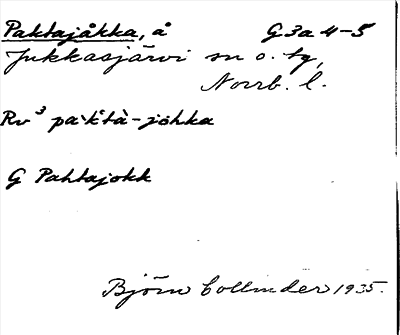 Paktajåkka, å G3a 4-5
Jukkasjärvi sn o. tg,
Norrb. l.
Rv³ pa'k'tà-jòhka
G Pahtajokk
Björn Collinder 1935.